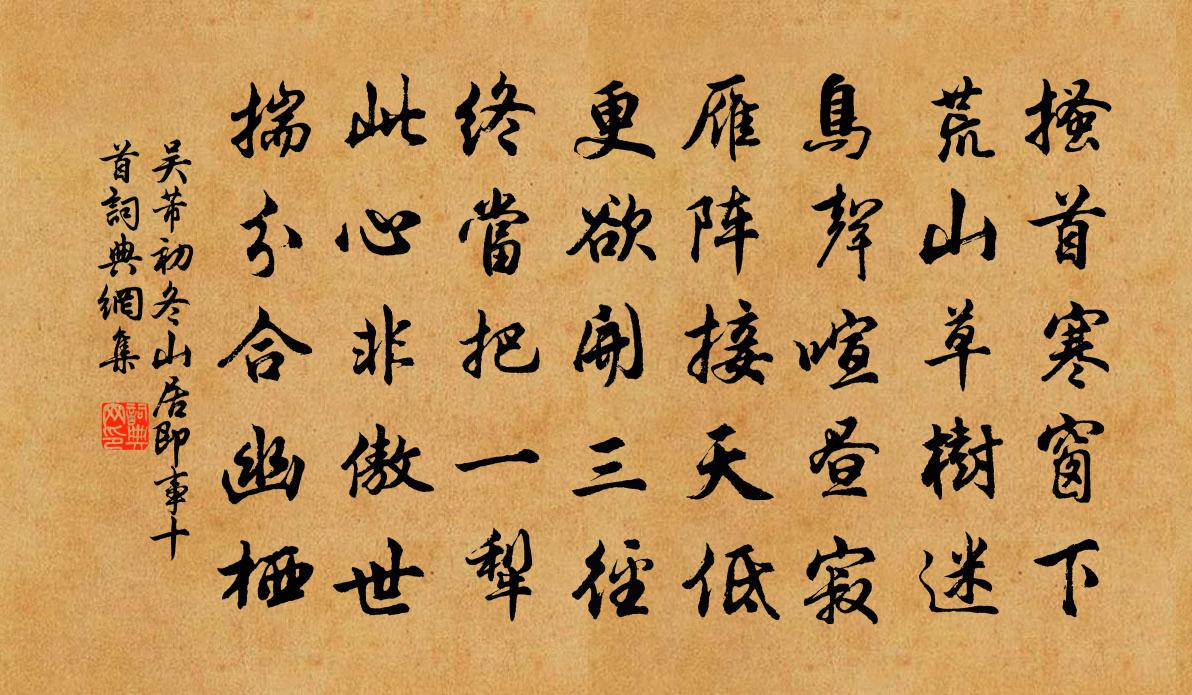 搔首寒窗下
荒山草樹迷
鳥聲喧昼寂
雁阵接天低
更欲開三徑
终當把一犁
此心非傲世
揣分合幽栖
吴芾初冬山居即事十
首詞典網集
詞典
网印